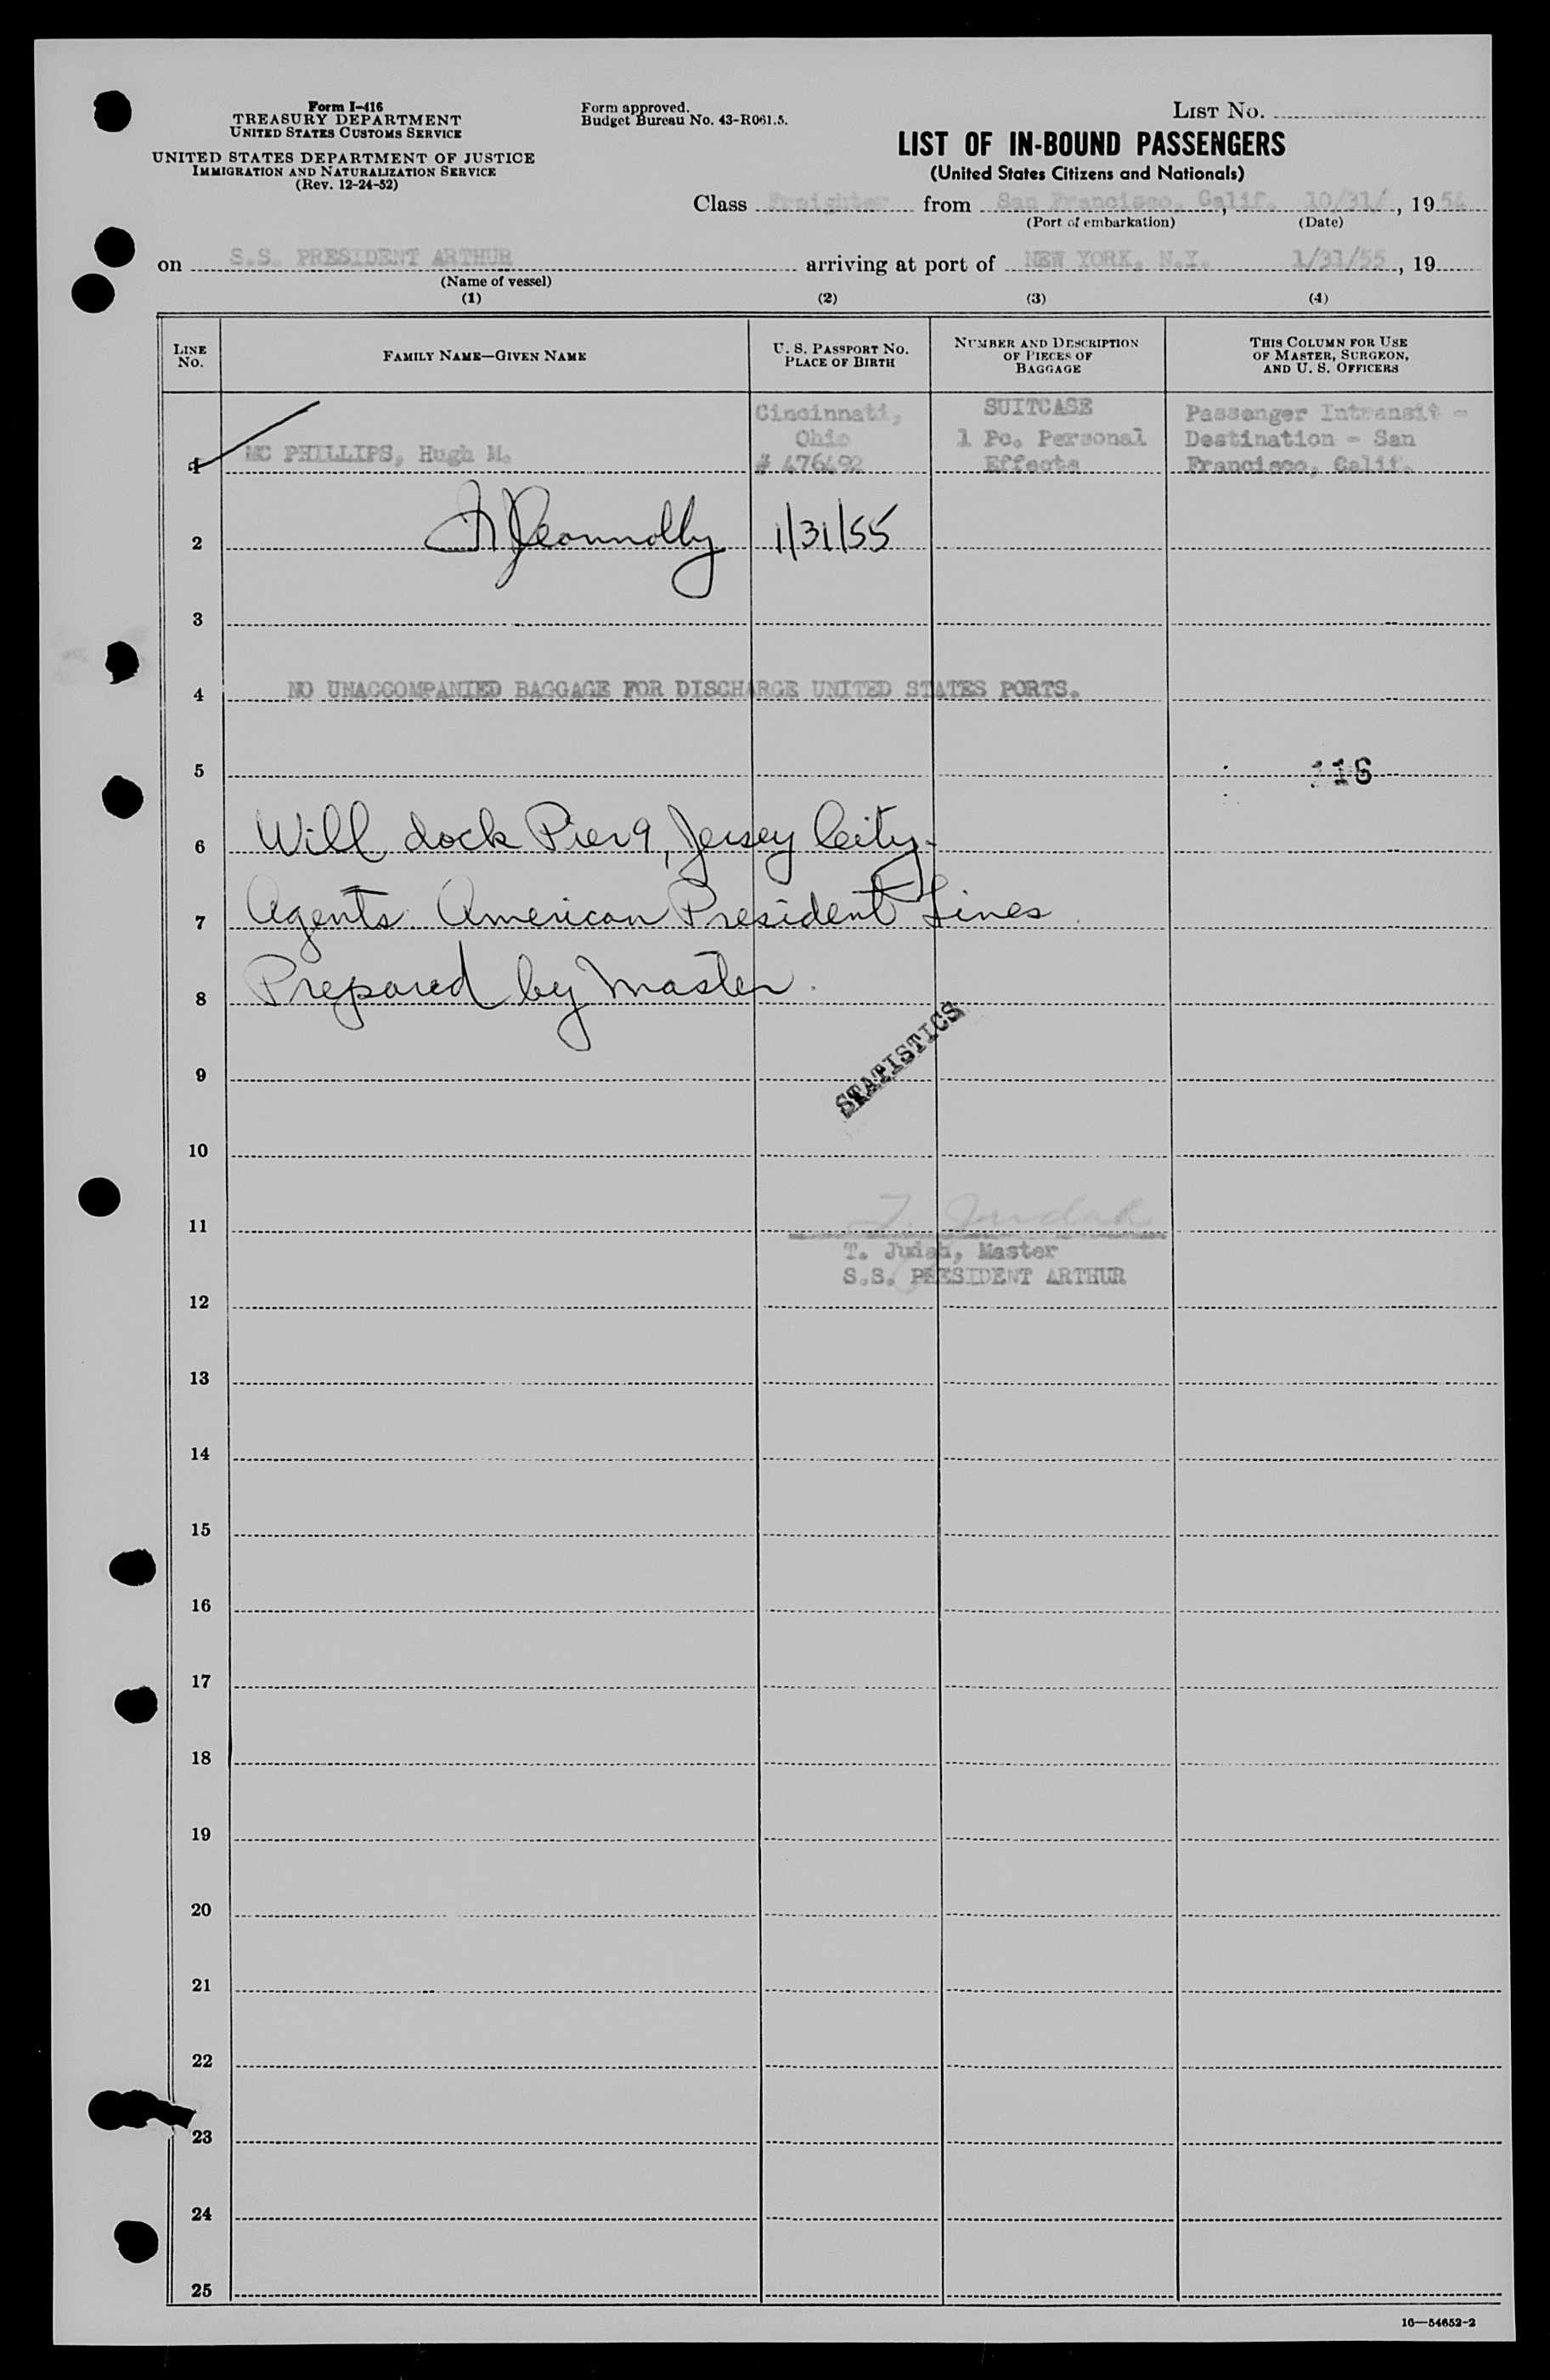 Form I-416
TREASURY DEPARTMENT
UNITED STATES CUSTOMS SERVICE
UNITED STATES DEPARTMENT OF JUSTICE
IMMIGRATION AND NATURALIZATION SERVICE
(Rev. 12-24-52)
Form approved.
Budget Bureau No. 43-R061.5.
LIST NO.
LIST OF IN-BOUND PASSENGERS
(United States Citizens and Nationals)
Class Freighter from San Francisco, Calif., 10/31/, 1954
(Port of embarkation) (Date)
on S.S. PRESIDENT ARTHUR arriving at port of NEW YORK, N.Y. 1/31/55, 19
(Name of vessel)
(1) (2) (3) (4)
LINE NO.
FAMILY NAME—GIVEN NAME
U. S. PASSPORT NO.
PLACE OF BIRTH
NUMBER AND DESCRIPTION
OF PIECES OF
BAGGAGE
THIS COLUMN FOR USE
OF MASTER, SURGEON,
AND U. S. OFFICERS
1 MC PHILLIPS, Hugh M.
Cincinnati,
Ohio
# 476492
SUITCASE
1 Pc. Personal
Effects
Passenger Intransit -
Destination - San
Francisco, Calif.
2 Connolly 1/31/55
3
4 NO UNACCOMPANIED BAGGAGE FOR DISCHARGE UNITED STATES PORTS.
5 116
6 Will dock Pier 9, Jersey City.
7 Agents. American President Lines.
8 Prepared by Master.
STATISTICS
9
10
11 T. Judah
T. Judah, Master
S.S. PRESIDENT ARTHUR
12
13
14
15
16
17
18
19
20
21
22
23
24
25
16—54652-2